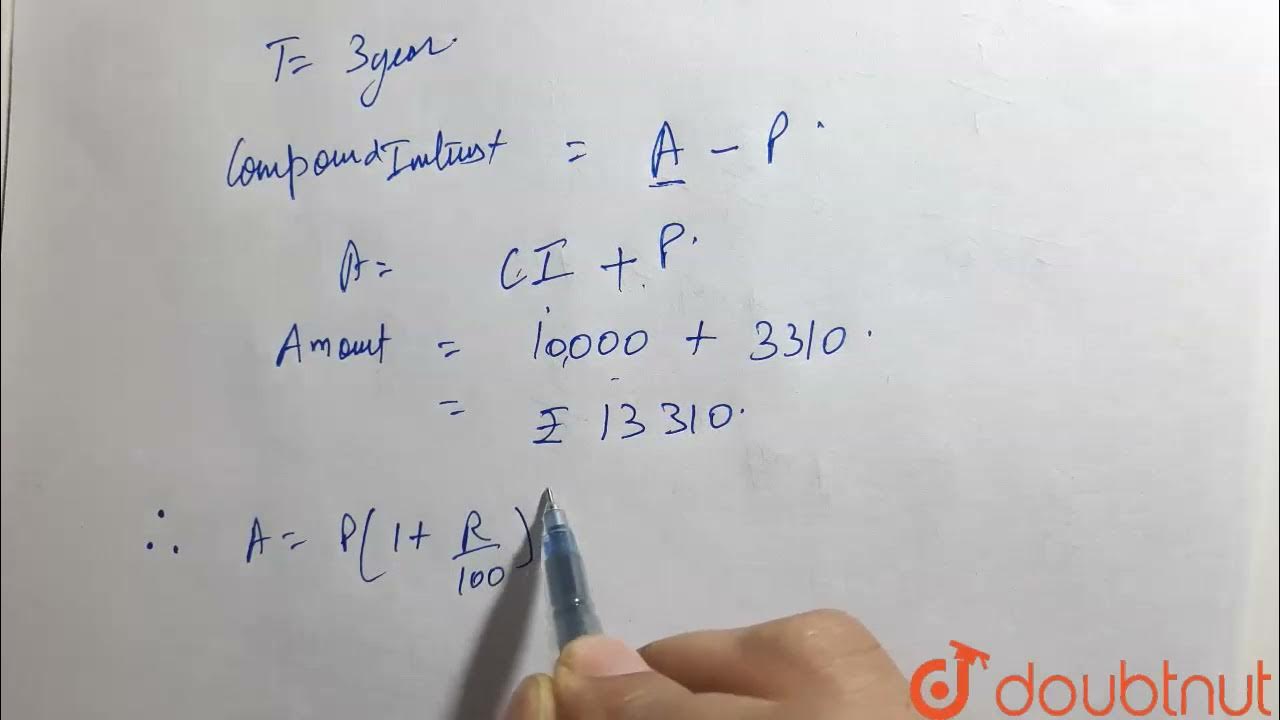 T= 3year.
Compound Intrust = A - P.
A= CI + P.
Amount = 10,000 + 3310.
= ₹ 13310.
∴ A= P(1+ R/100)
doubtnut